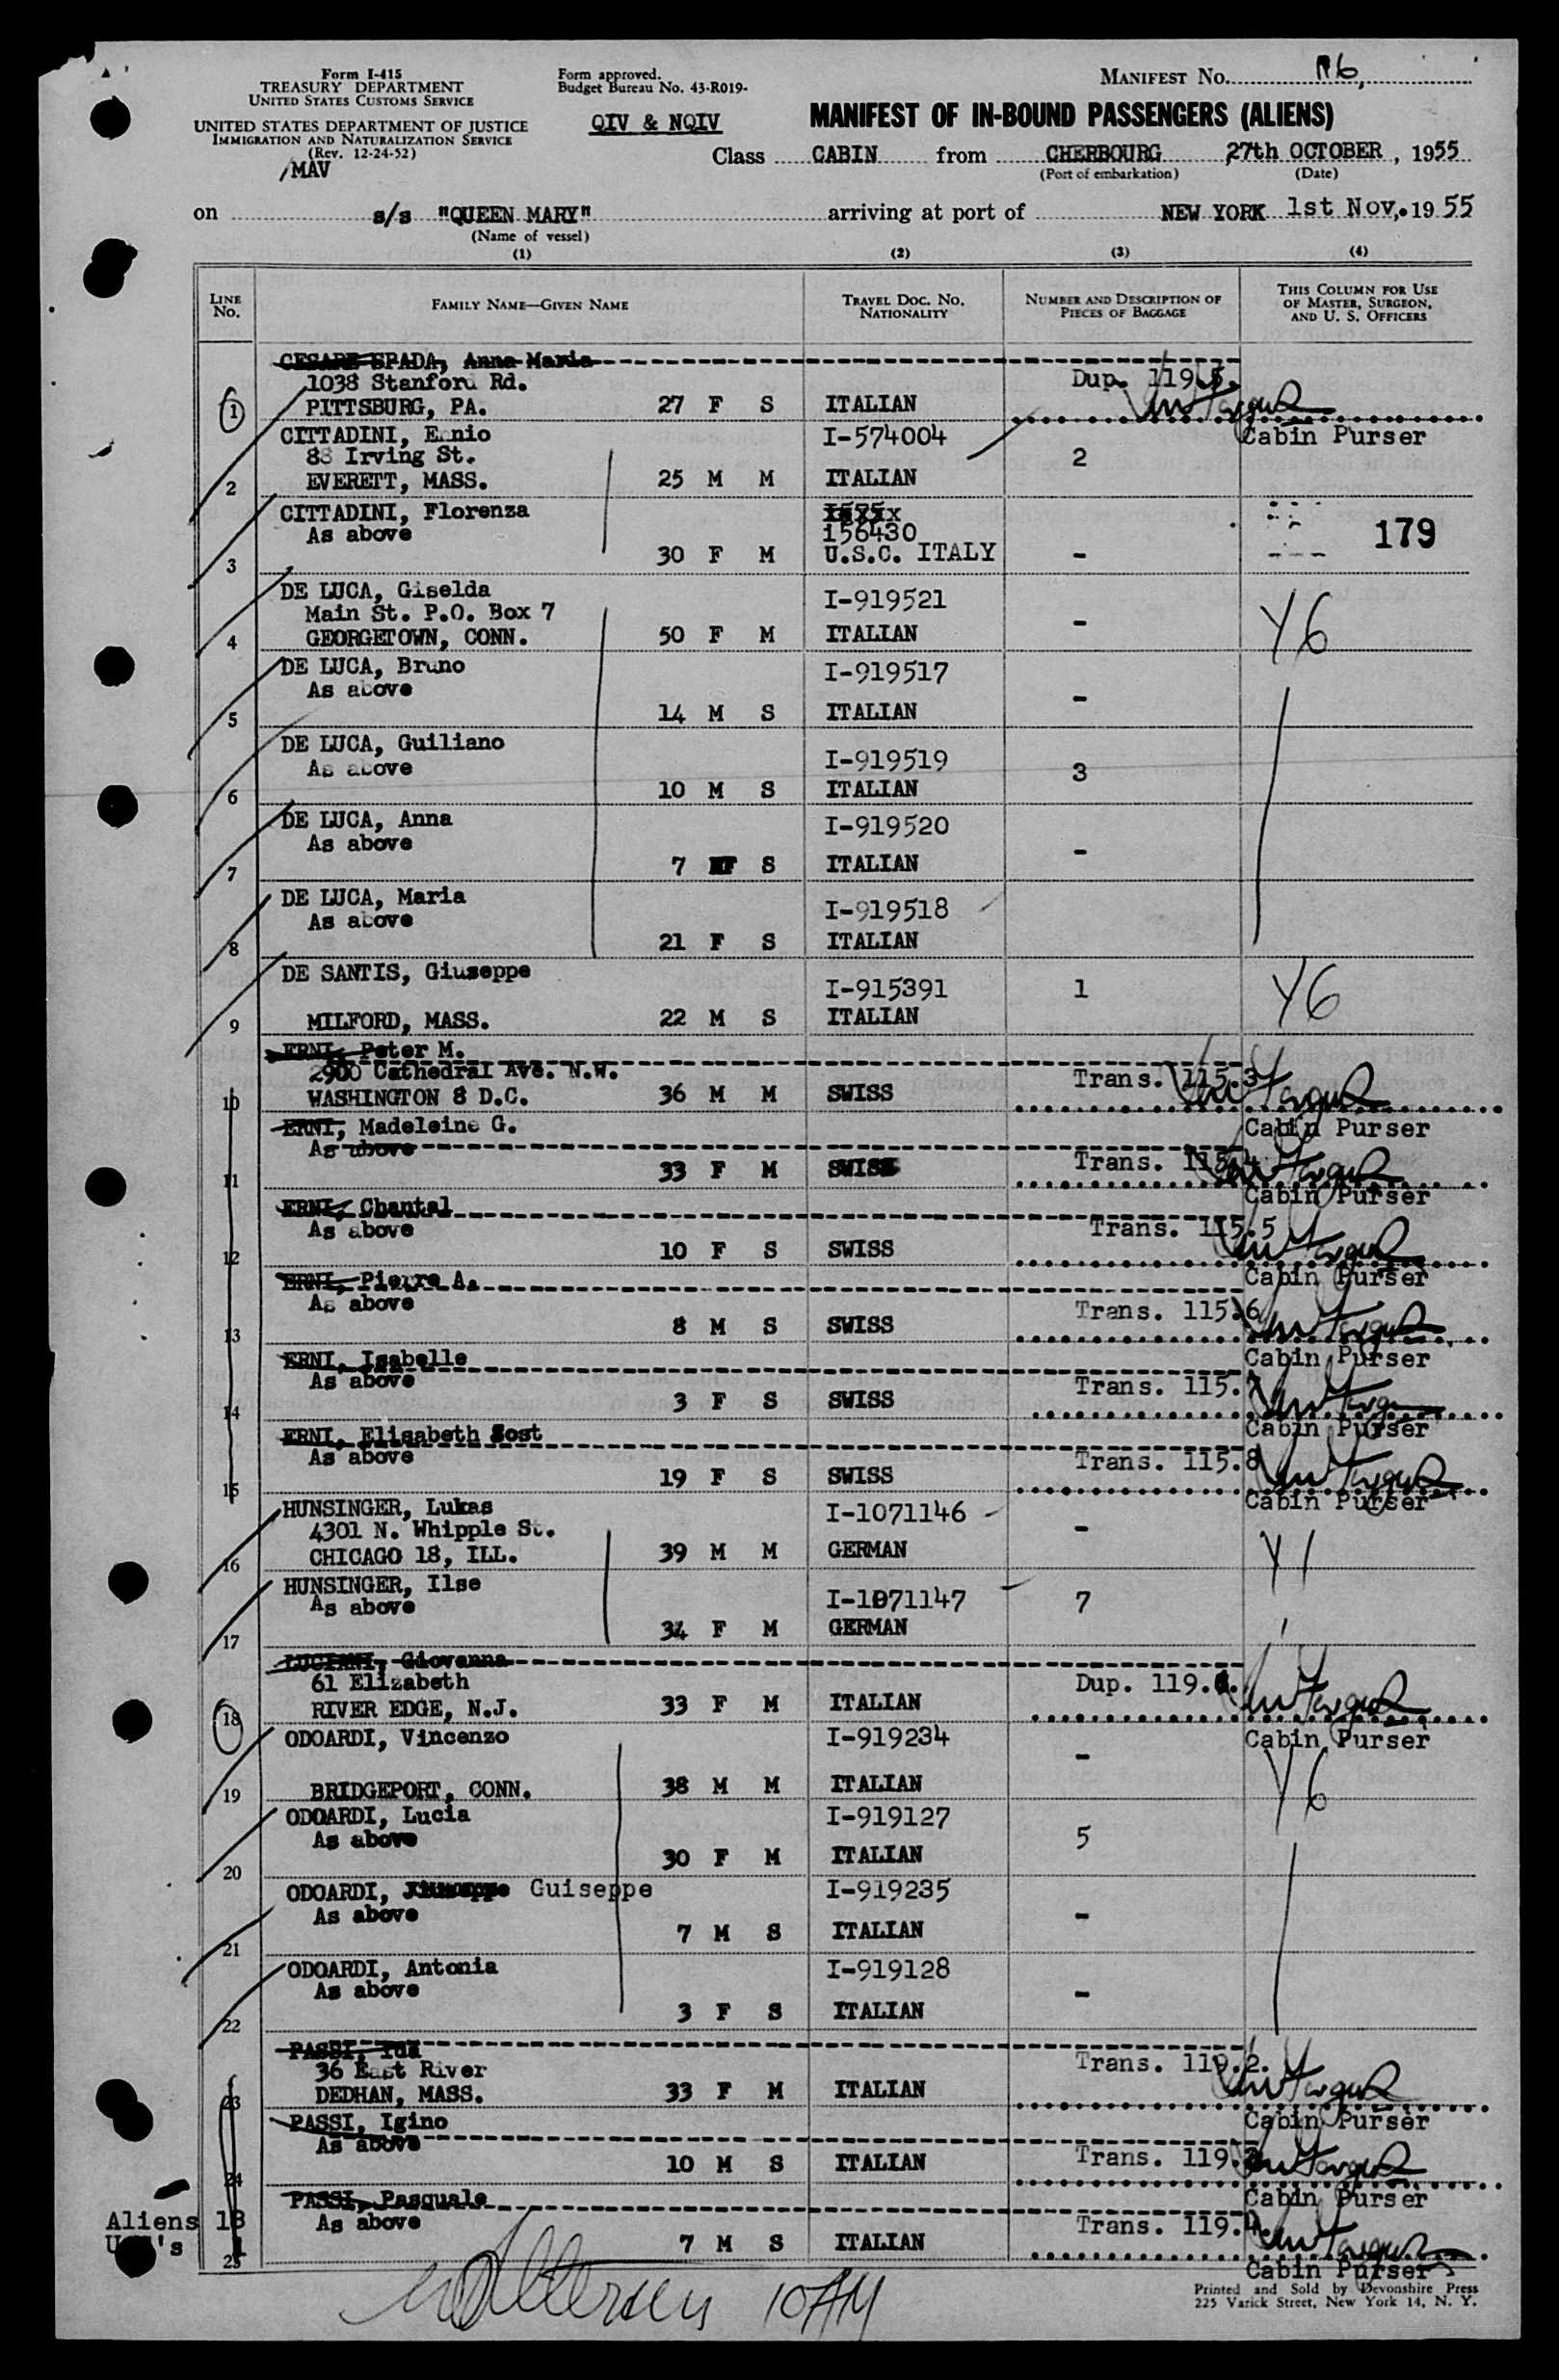 Form I-415
TREASURY DEPARTMENT
UNITED STATES CUSTOMS SERVICE
UNITED STATES DEPARTMENT OF JUSTICE
IMMIGRATION AND NATURALIZATION SERVICE
(Rev. 12-24-52)
/MAV
Form approved.
Budget Bureau No. 43-R019-
QIV & NQIV
MANIFEST No.
MANIFEST OF IN-BOUND PASSENGERS (ALIENS)
Class CABIN from CHERBOURG 27th OCTOBER, 1955
(Port of embarkation) (Date)
on s/s "QUEEN MARY" arriving at port of NEW YORK 1st Nov,. 1955
(Name of vessel)
(1) (2) (3) (4)
LINE No. FAMILY NAME—GIVEN NAME TRAVEL DOC. NO. NATIONALITY NUMBER AND DESCRIPTION OF PIECES OF BAGGAGE THIS COLUMN FOR USE OF MASTER, SURGEON, AND U. S. OFFICERS
CESARE SPADA, Anna Maria
1038 Stanford Rd. Dup. 119.5.
1 PITTSBURG, PA. 27 F S ITALIAN
CITTADINI, Ennio I-574004 Cabin Purser
88 Irving St. 2
2 EVERETT, MASS. 25 M M ITALIAN
CITTADINI, Florenza
As above 156430 179
3 30 F M U.S.C. ITALY -
DE LUCA, Giselda I-919521
Main St. P.O. Box 7 - Y6
4 GEORGETOWN, CONN. 50 F M ITALIAN
DE LUCA, Bruno I-919517
As above -
5 14 M S ITALIAN
DE LUCA, Guiliano I-919519
As above 3
6 10 M S ITALIAN
DE LUCA, Anna I-919520
As above -
7 7 F S ITALIAN
DE LUCA, Maria I-919518
As above
8 21 F S ITALIAN
DE SANTIS, Giuseppe I-915391 1 Y6
9 MILFORD, MASS. 22 M S ITALIAN
ERNI, Peter M.
2900 Cathedral Ave. N.W. Trans. 115.3
10 WASHINGTON 8 D.C. 36 M M SWISS
ERNI, Madeleine G. Cabin Purser
As above Trans. 115.4
11 33 F M SWISS
ERNI, Chantal Cabin Purser
As above Trans. 115.5
12 10 F S SWISS
ERNI, Pierre A. Cabin Purser
As above Trans. 115.6
13 8 M S SWISS
ERNI, Isabelle Cabin Purser
As above Trans. 115.7
14 3 F S SWISS
ERNI, Elisabeth Sost Cabin Purser
As above Trans. 115.8
15 19 F S SWISS
HUNSINGER, Lukas I-1071146 Cabin Purser
4301 N. Whipple St. -
16 CHICAGO 18, ILL. 39 M M GERMAN Y1
HUNSINGER, Ilse I-1071147 7
As above
17 34 F M GERMAN
LUCIANI, Giovanna
61 Elizabeth Dup. 119.
18 RIVER EDGE, N.J. 33 F M ITALIAN
ODOARDI, Vincenzo I-919234 Cabin Purser
- Y6
19 BRIDGEPORT, CONN. 38 M M ITALIAN
ODOARDI, Lucia I-919127
As above 5
20 30 F M ITALIAN
ODOARDI, Guiseppe I-919235
As above -
21 7 M S ITALIAN
ODOARDI, Antonia I-919128
As above -
22 3 F S ITALIAN
PASSI, Ida
36 East River Trans. 119.2.
23 DEDHAN, MASS. 33 F M ITALIAN
PASSI, Igino Cabin Purser
As above Trans. 119.3
24 10 M S ITALIAN
PASSI, Pasquale Cabin Purser
As above Trans. 119.4.
25 7 M S ITALIAN
Cabin Purser
Aliens 18
10 AM
Printed and Sold by Devonshire Press
225 Varick Street, New York 14, N. Y.